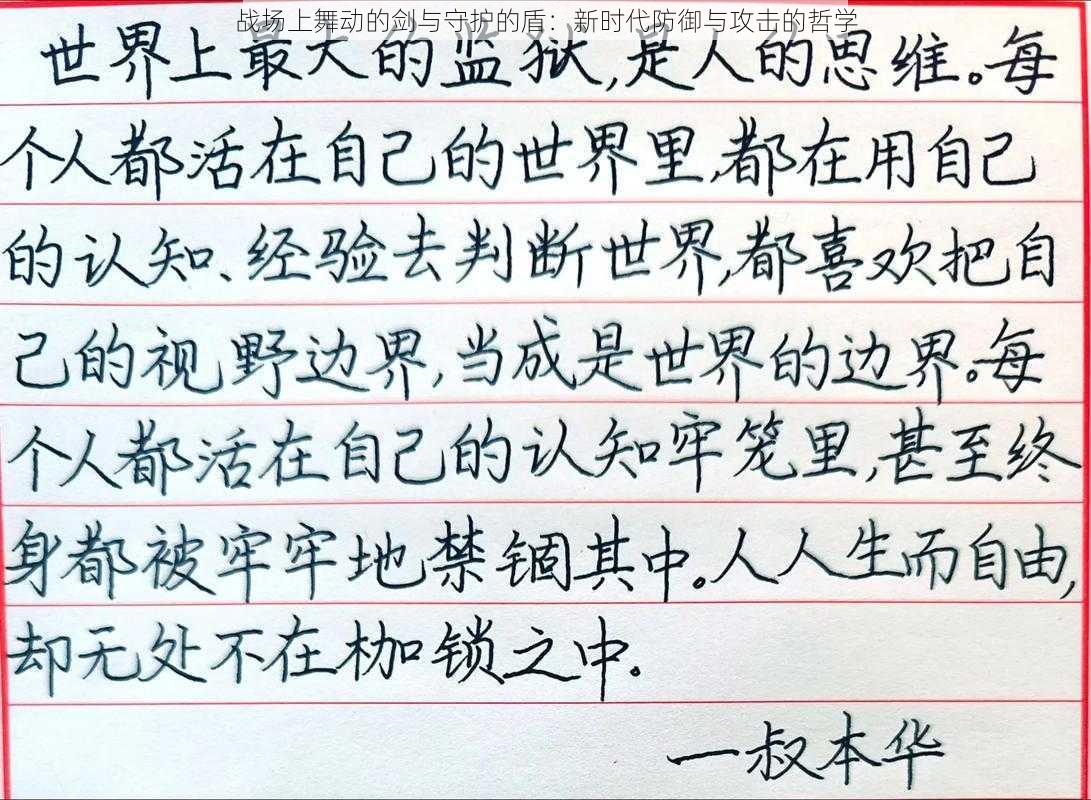 战场上舞动的剑与守护的盾：新时代防御与攻击的哲学
世界上最大的监狱,是人的思维。每
个人都活在自己的世界里,都在用自己
的认知、经验去判断世界,都喜欢把自
己的视野边界,当成是世界的边界。每
个人都活在自己的认知牢笼里,甚至终
身都被牢牢地禁锢其中。人人生而自由,
却无处不在枷锁之中。
一叔本华